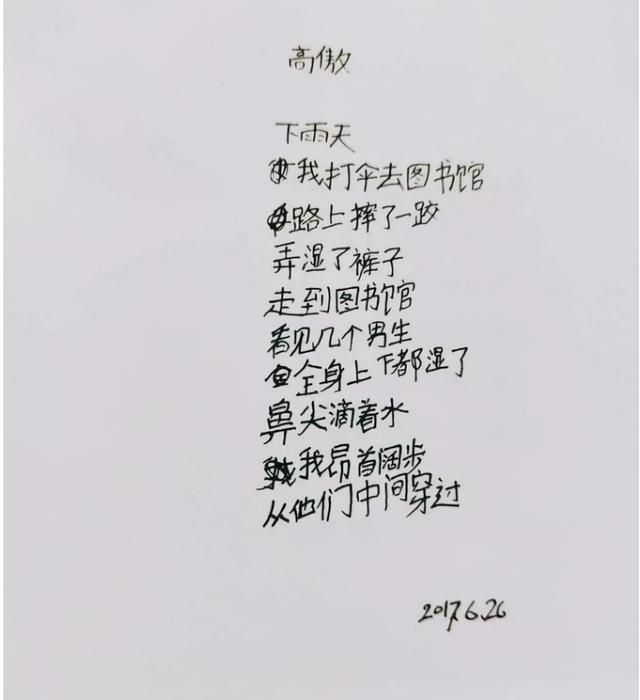 高傲
下雨天
我打伞去图书馆
路上摔了一跤
弄湿了裤子
走到图书馆
看见几个男生
全身上下都湿了
鼻尖滴着水
我昂首阔步
从他们中间穿过
2017.6.26